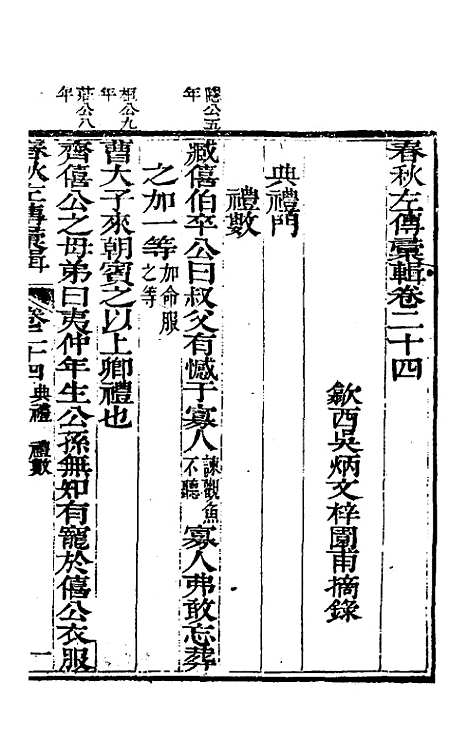 春秋左傳彙輯卷二十四
歙西吳炳文梓園甫摘錄
典禮門
禮數
隱公五年
臧僖伯卒公曰叔父有憾于寡人諫觀魚不聽寡人弗敢忘葬
之加一等加命服之等
桓公九年
曹大子來朝賓之以上卿禮也
莊公八年
齊僖公之母弟曰夷仲年生公孫無知有寵於僖公衣服
春秋左傳彙輯 卷二十四 典禮 禮數 一